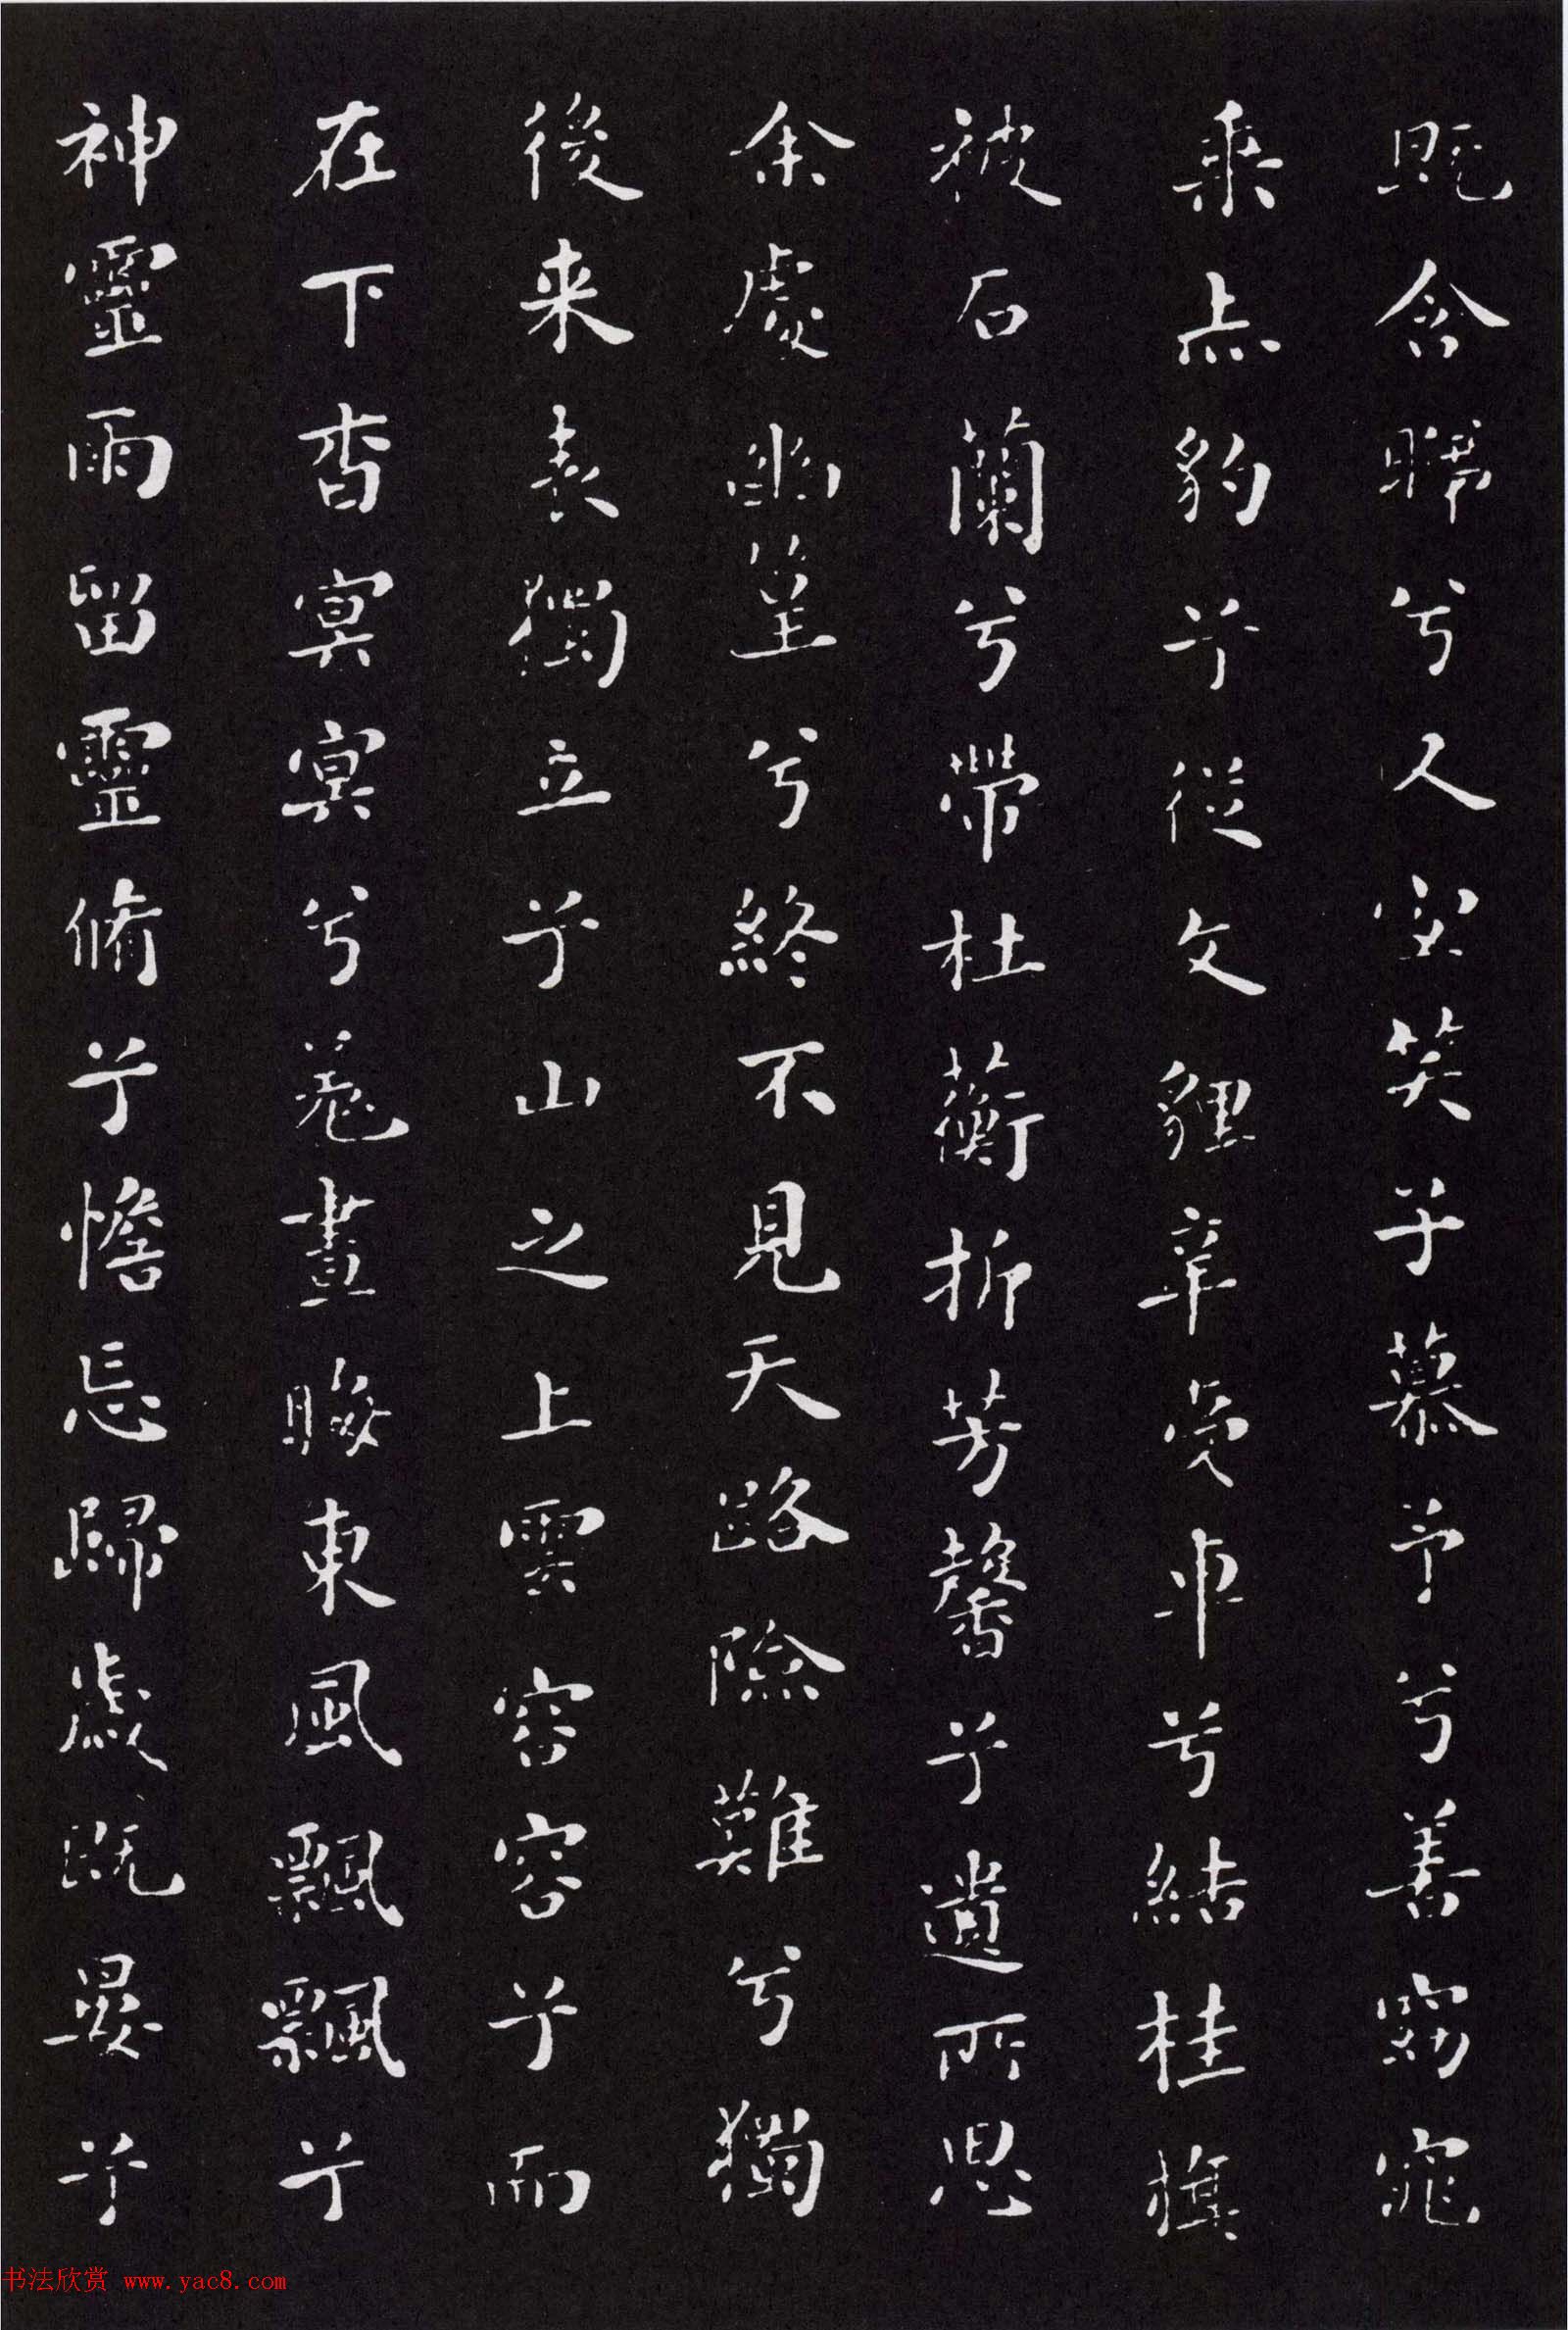 既含睇兮人宜笑子慕予兮善窈窕
乘赤豹兮從文貍辛夷車兮結桂旗
被石蘭兮帶杜蘅折芳馨兮遺所思
余處幽篁兮終不見天路險難兮獨
後来表獨立兮山之上雲容容兮而
在下杳冥冥兮羌晝晦東風飄飄兮
神靈雨留靈脩兮憺忘歸歲既晏兮
书法欣赏 www.yac8.com